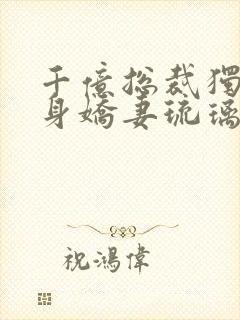 千億总裁獨
身嬌妻琉璃
祝鴻偉